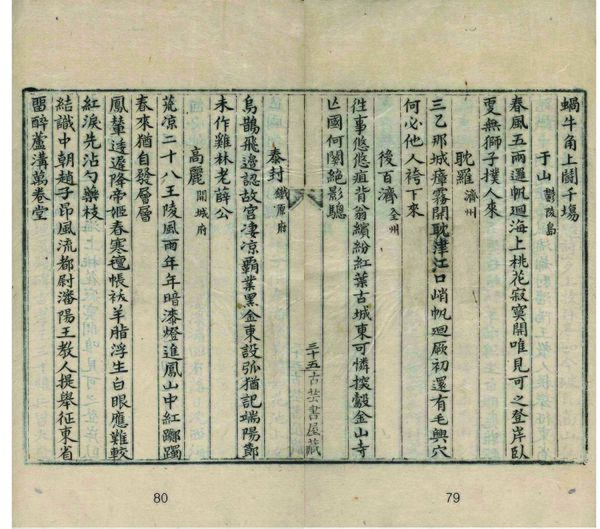 蝸牛角上鬪千塲
于山 鬱陵島
春風五兩邏帆廻海上桃花寂寞開唯見可之登岸臥
更無獅子撲人來
耽羅 濟州
三乙那城瘴霧開耽津江口峭帆廻厥初還有毛興穴
何必他人袴下來
後百濟 全州
徃事悠悠疽背翁繽紛紅葉古城東可憐摋鷇金山寺
亾國何關絕影驄
三十五 古芸書屋菆
泰封 鐵原府
烏鵲飛邊認故宫凄凉覇業黑金東設弧猶記端陽節
未作雞林老薛公
高麗 開城府
荒凉二十八王陵風雨年年暗漆燈進鳳山中紅躑躅
春來猶自發層層
鳳輦逶遲降帝姬春寒氊帳祓羊脂浮生白眼應難較
紅淚先沾勺藥枝
結識中朝趙子昂風流都尉瀋陽王教人提舉征東省
留醉蘆溝萬卷堂
80
79